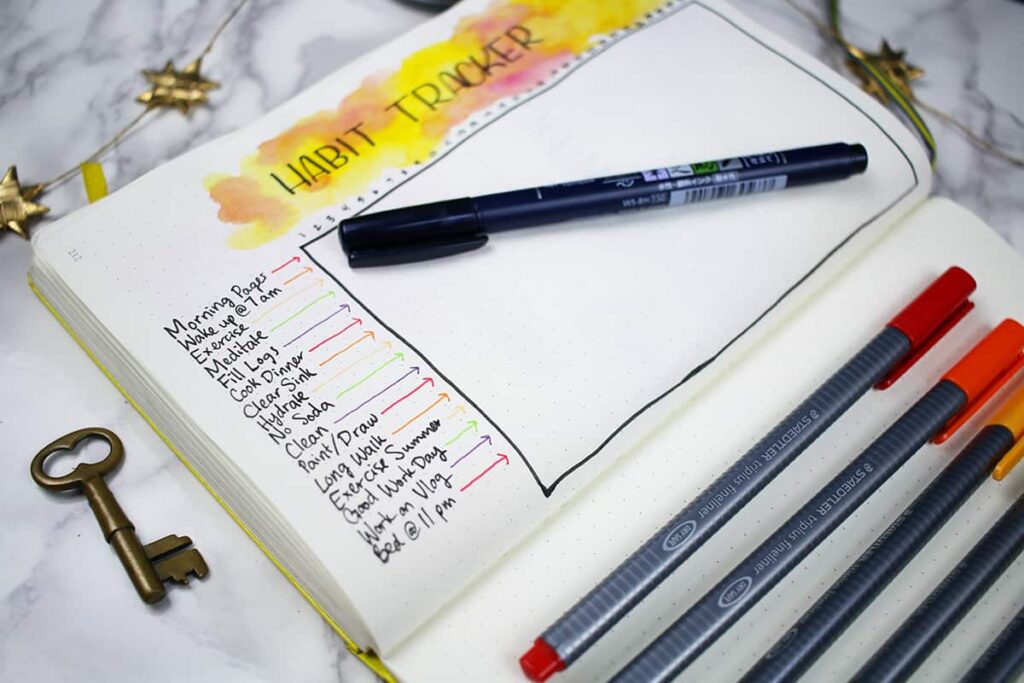 HABIT TRACKER
1 2 3 4 5
Morning Pages
Wake up @ 7 am
Exercise
Meditate
Fill Logs
Cook Dinner
Clear Sink
Hydrate
No Soda
Clean
Paint/Draw
Long Walk
Exercise Summer
Good Work Day
Work on Vlog
Bed @ 11 pm
WS-BH
STAEDTLER triplus fineliner
DRY SAFE
STAEDTLER triplus fineliner
DRY SAFE